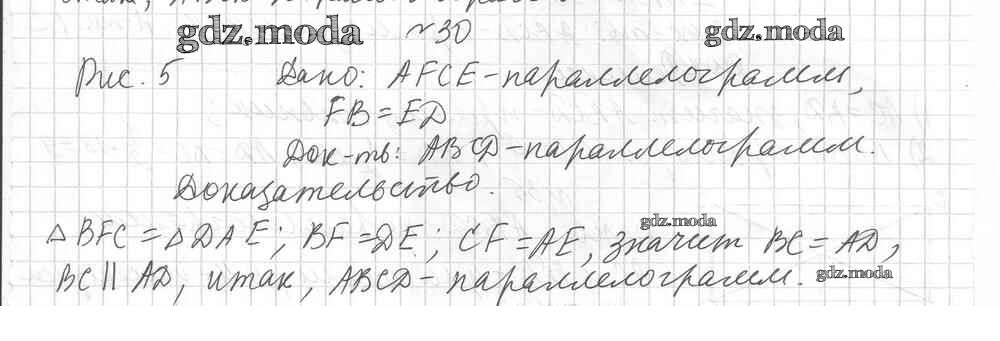 gdz.moda №30 gdz.moda
Рис. 5 Дано: AFCE-параллелограмм,
FB=ED
Док-ть: ABCD-параллелограмм.
Доказательство.
gdz.moda
△BFC=△DAE; BF=DE; CF=AE, значит BC=AD,
BC∥AD, итак, ABCD-параллелограмм.
gdz.moda